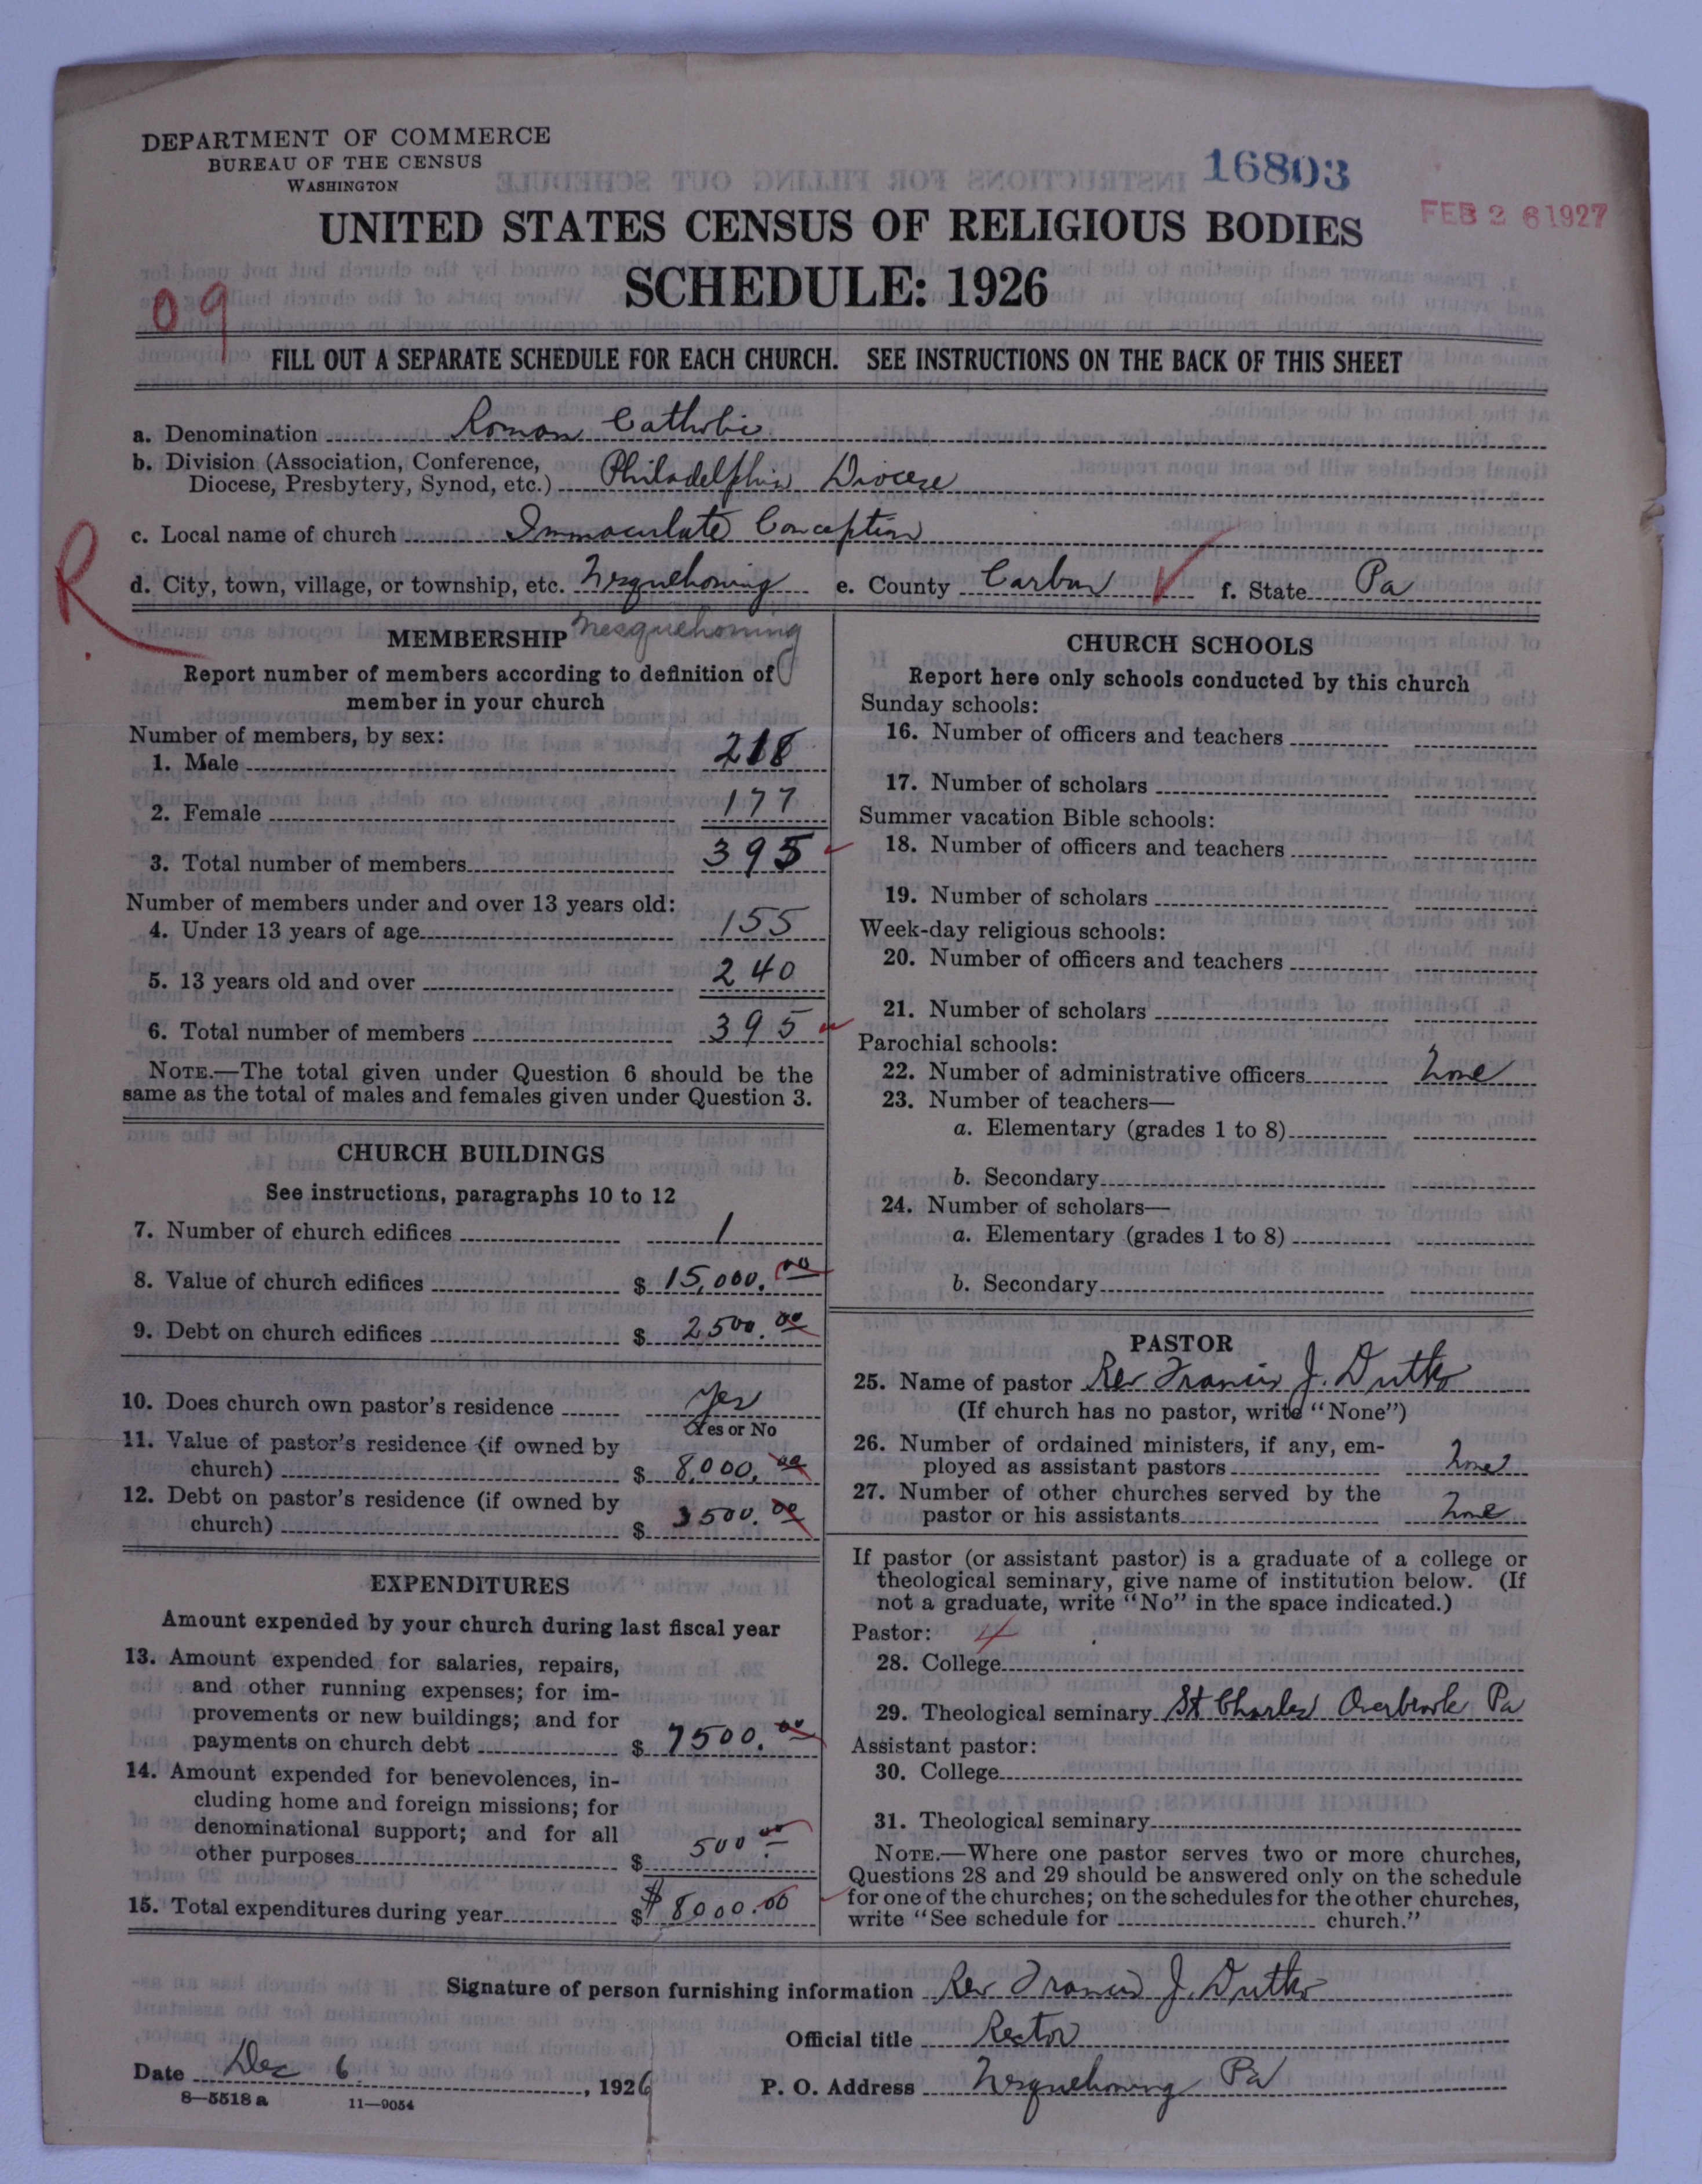 DEPARTMENT OF COMMERCE
BUREAU OF THE CENSUS
WASHINGTON
16803
FEB 26 1927
UNITED STATES CENSUS OF RELIGIOUS BODIES
SCHEDULE: 1926
09
FILL OUT A SEPARATE SCHEDULE FOR EACH CHURCH. SEE INSTRUCTIONS ON THE BACK OF THIS SHEET
a. Denomination Roman Catholic
b. Division (Association, Conference, Diocese, Presbytery, Synod, etc.) Philadelphia Diocese
c. Local name of church Immaculate Conception
R
d. City, town, village, or township, etc. Nesquehoning e. County Carbon f. State Pa
Nesquehoning
MEMBERSHIP
Report number of members according to definition of
member in your church
Number of members, by sex:
1. Male 218
2. Female 177
3. Total number of members 395
Number of members under and over 13 years old:
4. Under 13 years of age 155
5. 13 years old and over 240
6. Total number of members 395
NOTE.—The total given under Question 6 should be the
same as the total of males and females given under Question 3.
CHURCH BUILDINGS
See instructions, paragraphs 10 to 12
7. Number of church edifices 1
8. Value of church edifices $ 15,000.00
9. Debt on church edifices $ 2500.00
10. Does church own pastor's residence Yes
Yes or No
11. Value of pastor's residence (if owned by
church) $ 8,000.00
12. Debt on pastor's residence (if owned by
church) $ 3500.00
EXPENDITURES
Amount expended by your church during last fiscal year
13. Amount expended for salaries, repairs,
and other running expenses; for im-
provements or new buildings; and for
payments on church debt $ 7500.00
14. Amount expended for benevolences, in-
cluding home and foreign missions; for
denominational support; and for all
other purposes $ 500.00
15. Total expenditures during year $ $8000.00
CHURCH SCHOOLS
Report here only schools conducted by this church
Sunday schools:
16. Number of officers and teachers
17. Number of scholars
Summer vacation Bible schools:
18. Number of officers and teachers
19. Number of scholars
Week-day religious schools:
20. Number of officers and teachers
21. Number of scholars
Parochial schools:
22. Number of administrative officers None
23. Number of teachers—
a. Elementary (grades 1 to 8)
b. Secondary
24. Number of scholars—
a. Elementary (grades 1 to 8)
b. Secondary
PASTOR
25. Name of pastor Rev Francis J. Dutko
(If church has no pastor, write "None")
26. Number of ordained ministers, if any, em-
ployed as assistant pastors None
27. Number of other churches served by the
pastor or his assistants None
If pastor (or assistant pastor) is a graduate of a college or
theological seminary, give name of institution below. (If
not a graduate, write "No" in the space indicated.)
Pastor: 4
28. College
29. Theological seminary St Charles Overbrook Pa
Assistant pastor:
30. College
31. Theological seminary
NOTE.—Where one pastor serves two or more churches,
Questions 28 and 29 should be answered only on the schedule
for one of the churches; on the schedules for the other churches,
write "See schedule for church."
Signature of person furnishing information Rev Francis J. Dutko
Official title Rector
Date Dec 6, 1926
P. O. Address Nesquehoning Pa
8—5518 a 11—9054